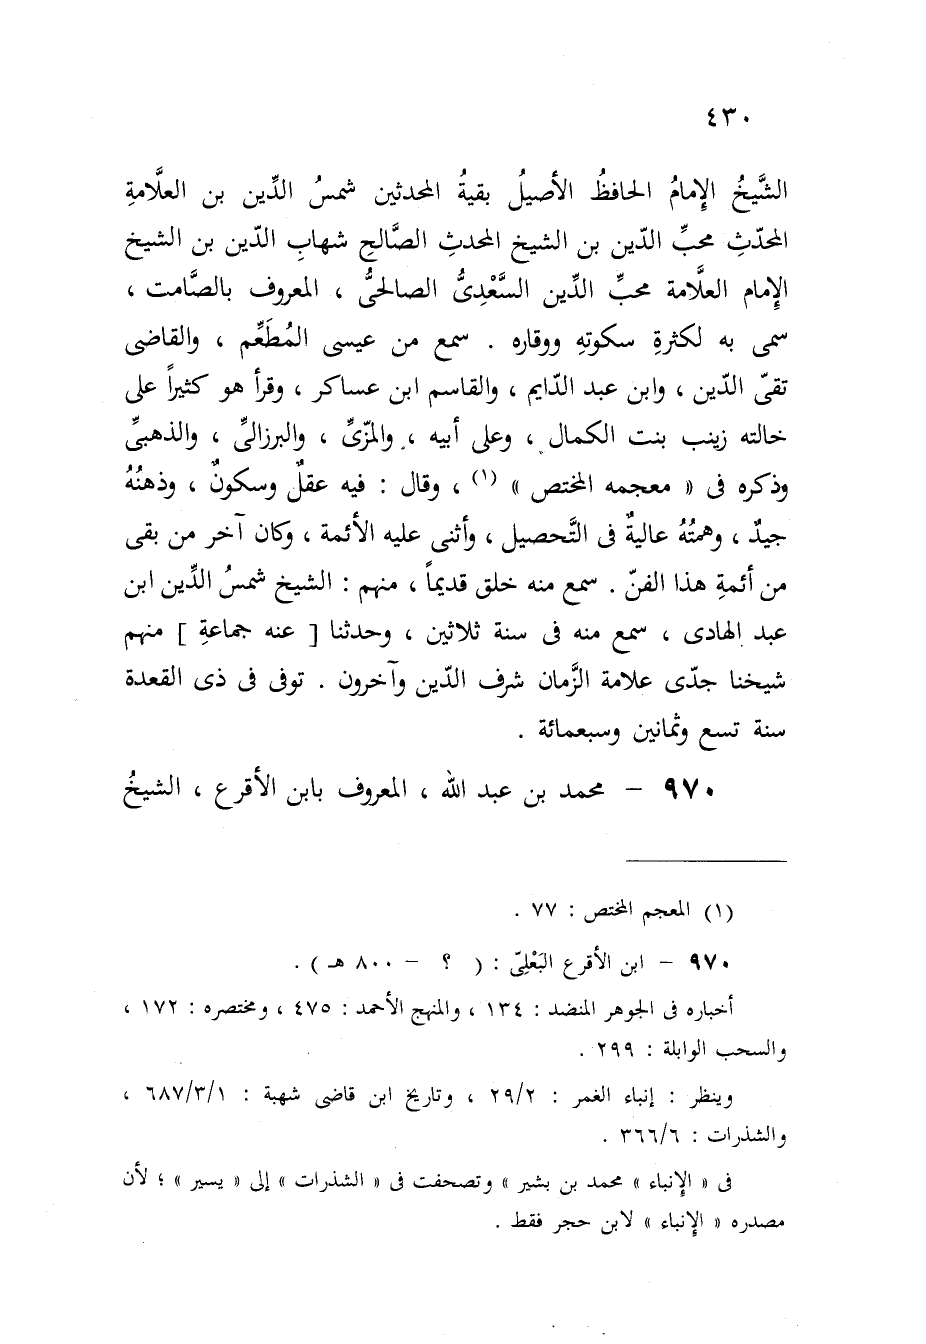 ٤٣٠
الشَّيخُ الإِمامُ الحافظُ الأصيلُ بقيةُ المحدثين شمسُ الدِّين بن العلَّامةِ
المحدّثِ محبِّ الدّين بن الشيخ المحدثِ الصَّالحِ شهابِ الدّين بن الشيخ
الإِمام العلَّامة محبِّ الدِّين السَّعْدِىُّ الصالحىُّ ، المعروف بالصَّامت ،
سمى به لكثرةِ سكوتهِ ووقاره . سمع من عيسى المُطَعِّم ، والقاضى
تقىّ الدّين ، وابن عبد الدّايم ، والقاسم ابن عساكر ، وقرأ هو كثيراً على
خالته زينب بنت الكمال ، وعلى أبيه ، والمزّىِّ ، والبرزالىِّ ، والذهبىِّ
وذكره فى « معجمه المختص » (١) ، وقال : فيه عقلٌ وسكونٌ ، وذهنُهُ
جيدٌ ، وهمتُهُ عاليةٌ فى التَّحصيل ، وأثنى عليه الأئمة ، وكان آخر من بقى
من أئمةِ هذا الفنّ . سمع منه خلق قديماً ، منهم : الشيخ شمسُ الدِّين ابن
عبد الهادى ، سمع منه فى سنة ثلاثين ، وحدثنا [ عنه جماعةِ ] منهم
شيخنا جدّى علامة الزَّمان شرف الدّين وآخرون . توفى فى ذى القعدة
سنة تسع وثمانين وسبعمائة .
٩٧٠ – محمد بن عبد الله ، المعروف بابن الأقرع ، الشيخُ
(١) المعجم المختص : ٧٧ .
٩٧٠ – ابن الأقرع البَعْلِىّ : ( ؟ – ٨٠٠ هـ ) .
أخباره فى الجوهر المنضد : ١٣٤ ، والمنهج الأحمد : ٤٧٥ ، ومختصره : ١٧٢ ،
والسحب الوابلة : ٢٩٩ .
وينظر : إنباء الغمر : ٢٩/٢ ، وتاريخ ابن قاضى شهبة : ٦٨٧/٣/١ ،
والشذرات : ٣٦٦/٦ .
فى « الإِنباء » محمد بن بشير » وتصحفت فى « الشذرات » إلى « يسير » ؛ لأن
مصدره « الإِنباء » لابن حجر فقط .